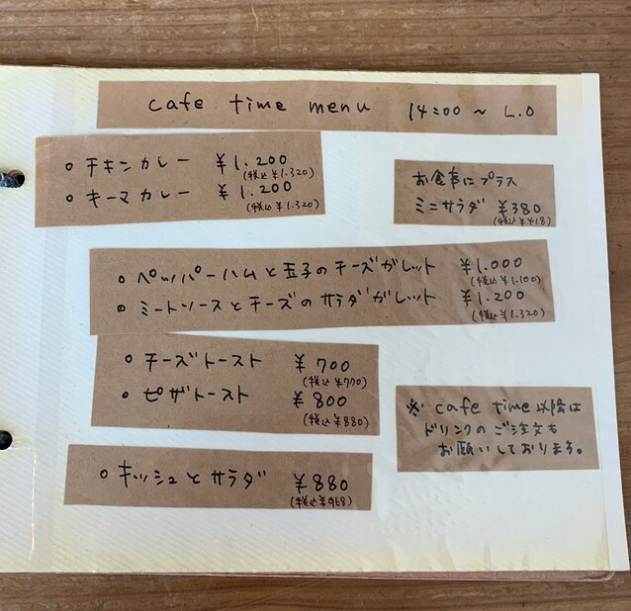 cafe time menu 14:00 ~ L.O
○ チキンカレー ¥1.200
(税込¥1.320)
○ キーマカレー ¥1.200
(税込¥1.320)
お食事にプラス
ミニサラダ ¥380
(税込¥418)
○ ペッパーハムと玉子のチーズガレット ¥1.000
(税込¥1.100)
○ ミートソースとチーズのサラダガレット ¥1.200
(税込¥1.320)
○ チーズトースト ¥700
(税込¥770)
○ ピザトースト ¥800
(税込¥880)
※ cafe time以降は
ドリンクのご注文も
お願いしております。
○ キッシュとサラダ ¥880
(税込¥968)